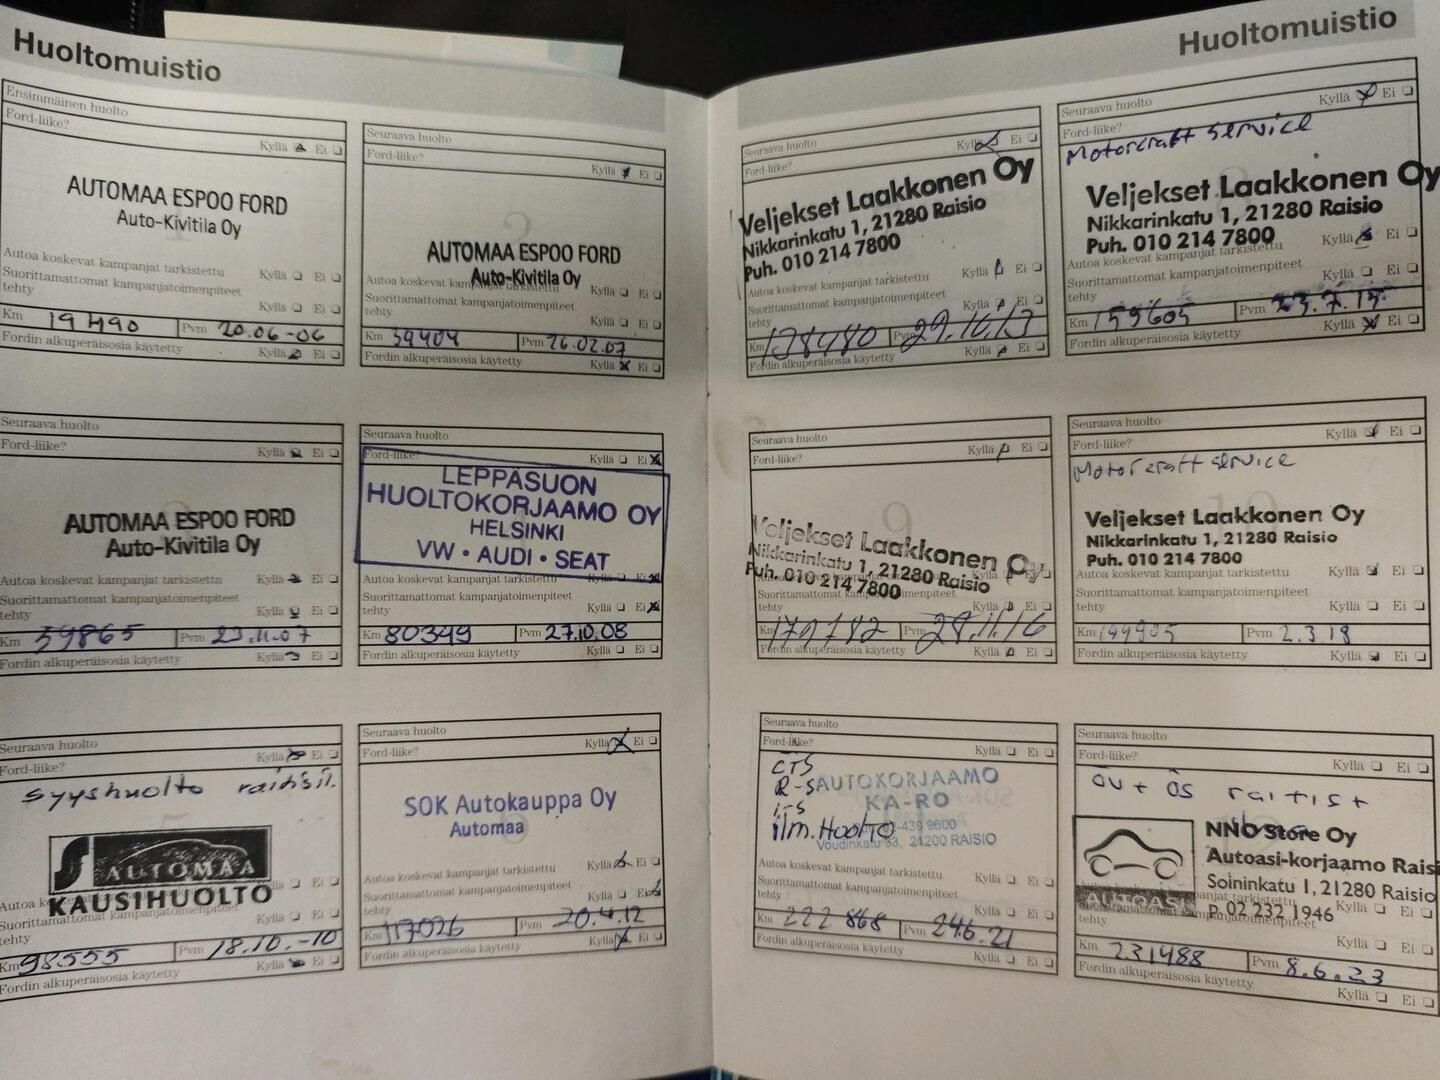 Huoltomuistio
Ensimmäinen huolto
Ford-liike?
Kyllä Ei
AUTOMAA ESPOO FORD
Auto-Kivitila Oy
Autoa koskevat kampanjat tarkistettu Kyllä Ei
Suorittamattomat kampanjatoimenpiteet
tehty Kyllä Ei
Km 19490 Pvm 20.06-06
Fordin alkuperäisosia käytetty Kyllä Ei
Seuraava huolto
Ford-liike?
Kyllä Ei
AUTOMAA ESPOO FORD
Auto-Kivitila Oy
Autoa koskevat kampanjat tarkistettu
Kyllä Ei
Suorittamattomat kampanjatoimenpiteet
tehty Kyllä Ei
Km 39404 Pvm 26.02.07
Fordin alkuperäisosia käytetty Kyllä Ei
Seuraava huolto
Ford-liike? Kyllä Ei
AUTOMAA ESPOO FORD
Auto-Kivitila Oy
Autoa koskevat kampanjat tarkistettu Kyllä Ei
Suorittamattomat kampanjatoimenpiteet
tehty Kyllä Ei
Km 59865 Pvm 23.11.07
Fordin alkuperäisosia käytetty Kyllä Ei
Seuraava huolto
Ford-liike? Kyllä Ei
LEPPÄSUON
HUOLTOKORJAAMO OY
HELSINKI
VW • AUDI • SEAT
Autoa koskevat kampanjat tarkistettu Kyllä Ei
Suorittamattomat kampanjatoimenpiteet
tehty Kyllä Ei
Km 80349 Pvm 27.10.08
Fordin alkuperäisosia käytetty Kyllä Ei
Seuraava huolto
Ford-liike? Kyllä Ei
Syyshuolto
AUTOMAA
KAUSIHUOLTO
Autoa
Suorittamattomat kampanjatoimenpiteet
tehty Kyllä Ei
Km 98555 Pvm 18.10.-10
Fordin alkuperäisosia käytetty Kyllä Ei
Seuraava huolto
Ford-liike? Kyllä Ei
SOK Autokauppa Oy
Automaa
Autoa koskevat kampanjat tarkistettu Kyllä Ei
Suorittamattomat kampanjatoimenpiteet
tehty Kyllä Ei
Km 117026 Pvm 20.4.12
Fordin alkuperäisosia käytetty Kyllä Ei
Huoltomuistio
Seuraava huolto
Ford-liike? Kyllä Ei
Veljekset Laakkonen Oy
Nikkarinkatu 1, 21280 Raisio
Puh. 010 214 7800
Autoa koskevat kampanjat tarkistettu Kyllä Ei
Suorittamattomat kampanjatoimenpiteet
tehty Kyllä Ei
Km 138480 Pvm 29.10.13
Fordin alkuperäisosia käytetty Kyllä Ei
Seuraava huolto
Ford-liike? Kyllä Ei
Motorcraft service
Veljekset Laakkonen Oy
Nikkarinkatu 1, 21280 Raisio
Puh. 010 214 7800
Autoa koskevat kampanjat tarkistettu Kyllä Ei
Suorittamattomat kampanjatoimenpiteet
tehty Kyllä Ei
Km 159605 Pvm 23.7.15
Fordin alkuperäisosia käytetty Kyllä Ei
Seuraava huolto
Ford-liike? Kyllä Ei
9
Veljekset Laakkonen Oy
Nikkarinkatu 1, 21280 Raisio
Puh. 010 214 7800
Autoa koskevat kampanjat tarkistettu Kyllä Ei
Suorittamattomat kampanjatoimenpiteet
tehty Kyllä Ei
Km 179782 Pvm 28.11.16
Fordin alkuperäisosia käytetty Kyllä Ei
Seuraava huolto
Ford-liike? Kyllä Ei
Motorcraft service
Veljekset Laakkonen Oy
Nikkarinkatu 1, 21280 Raisio
Puh. 010 214 7800
Autoa koskevat kampanjat tarkistettu Kyllä Ei
Suorittamattomat kampanjatoimenpiteet
tehty
Km 199905 Pvm 2.3.18
Fordin alkuperäisosia käytetty Kyllä Ei
Seuraava huolto
Ford-liike? Kyllä Ei
AUTOKORJAAMO
KA-RO
ilm. Huolto -439 9600
Voudinkatu 33, 21200 RAISIO
Autoa koskevat kampanjat tarkistettu Kyllä Ei
Suorittamattomat kampanjatoimenpiteet
tehty Kyllä Ei
Km 222 868 Pvm 24.6.21
Fordin alkuperäisosia käytetty Kyllä Ei
Seuraava huolto
Ford-liike? Kyllä Ei
öv + ös raitist
NNO Store Oy
Autoasi-korjaamo Rais
Soininkatu 1, 21280 Raisio
AUTOASI P. 02 232 1946
Kyllä Ei
tehty Kyllä Ei
Km 231488 Pvm 8.6.23
Fordin alkuperäisosia käytetty Kyllä Ei